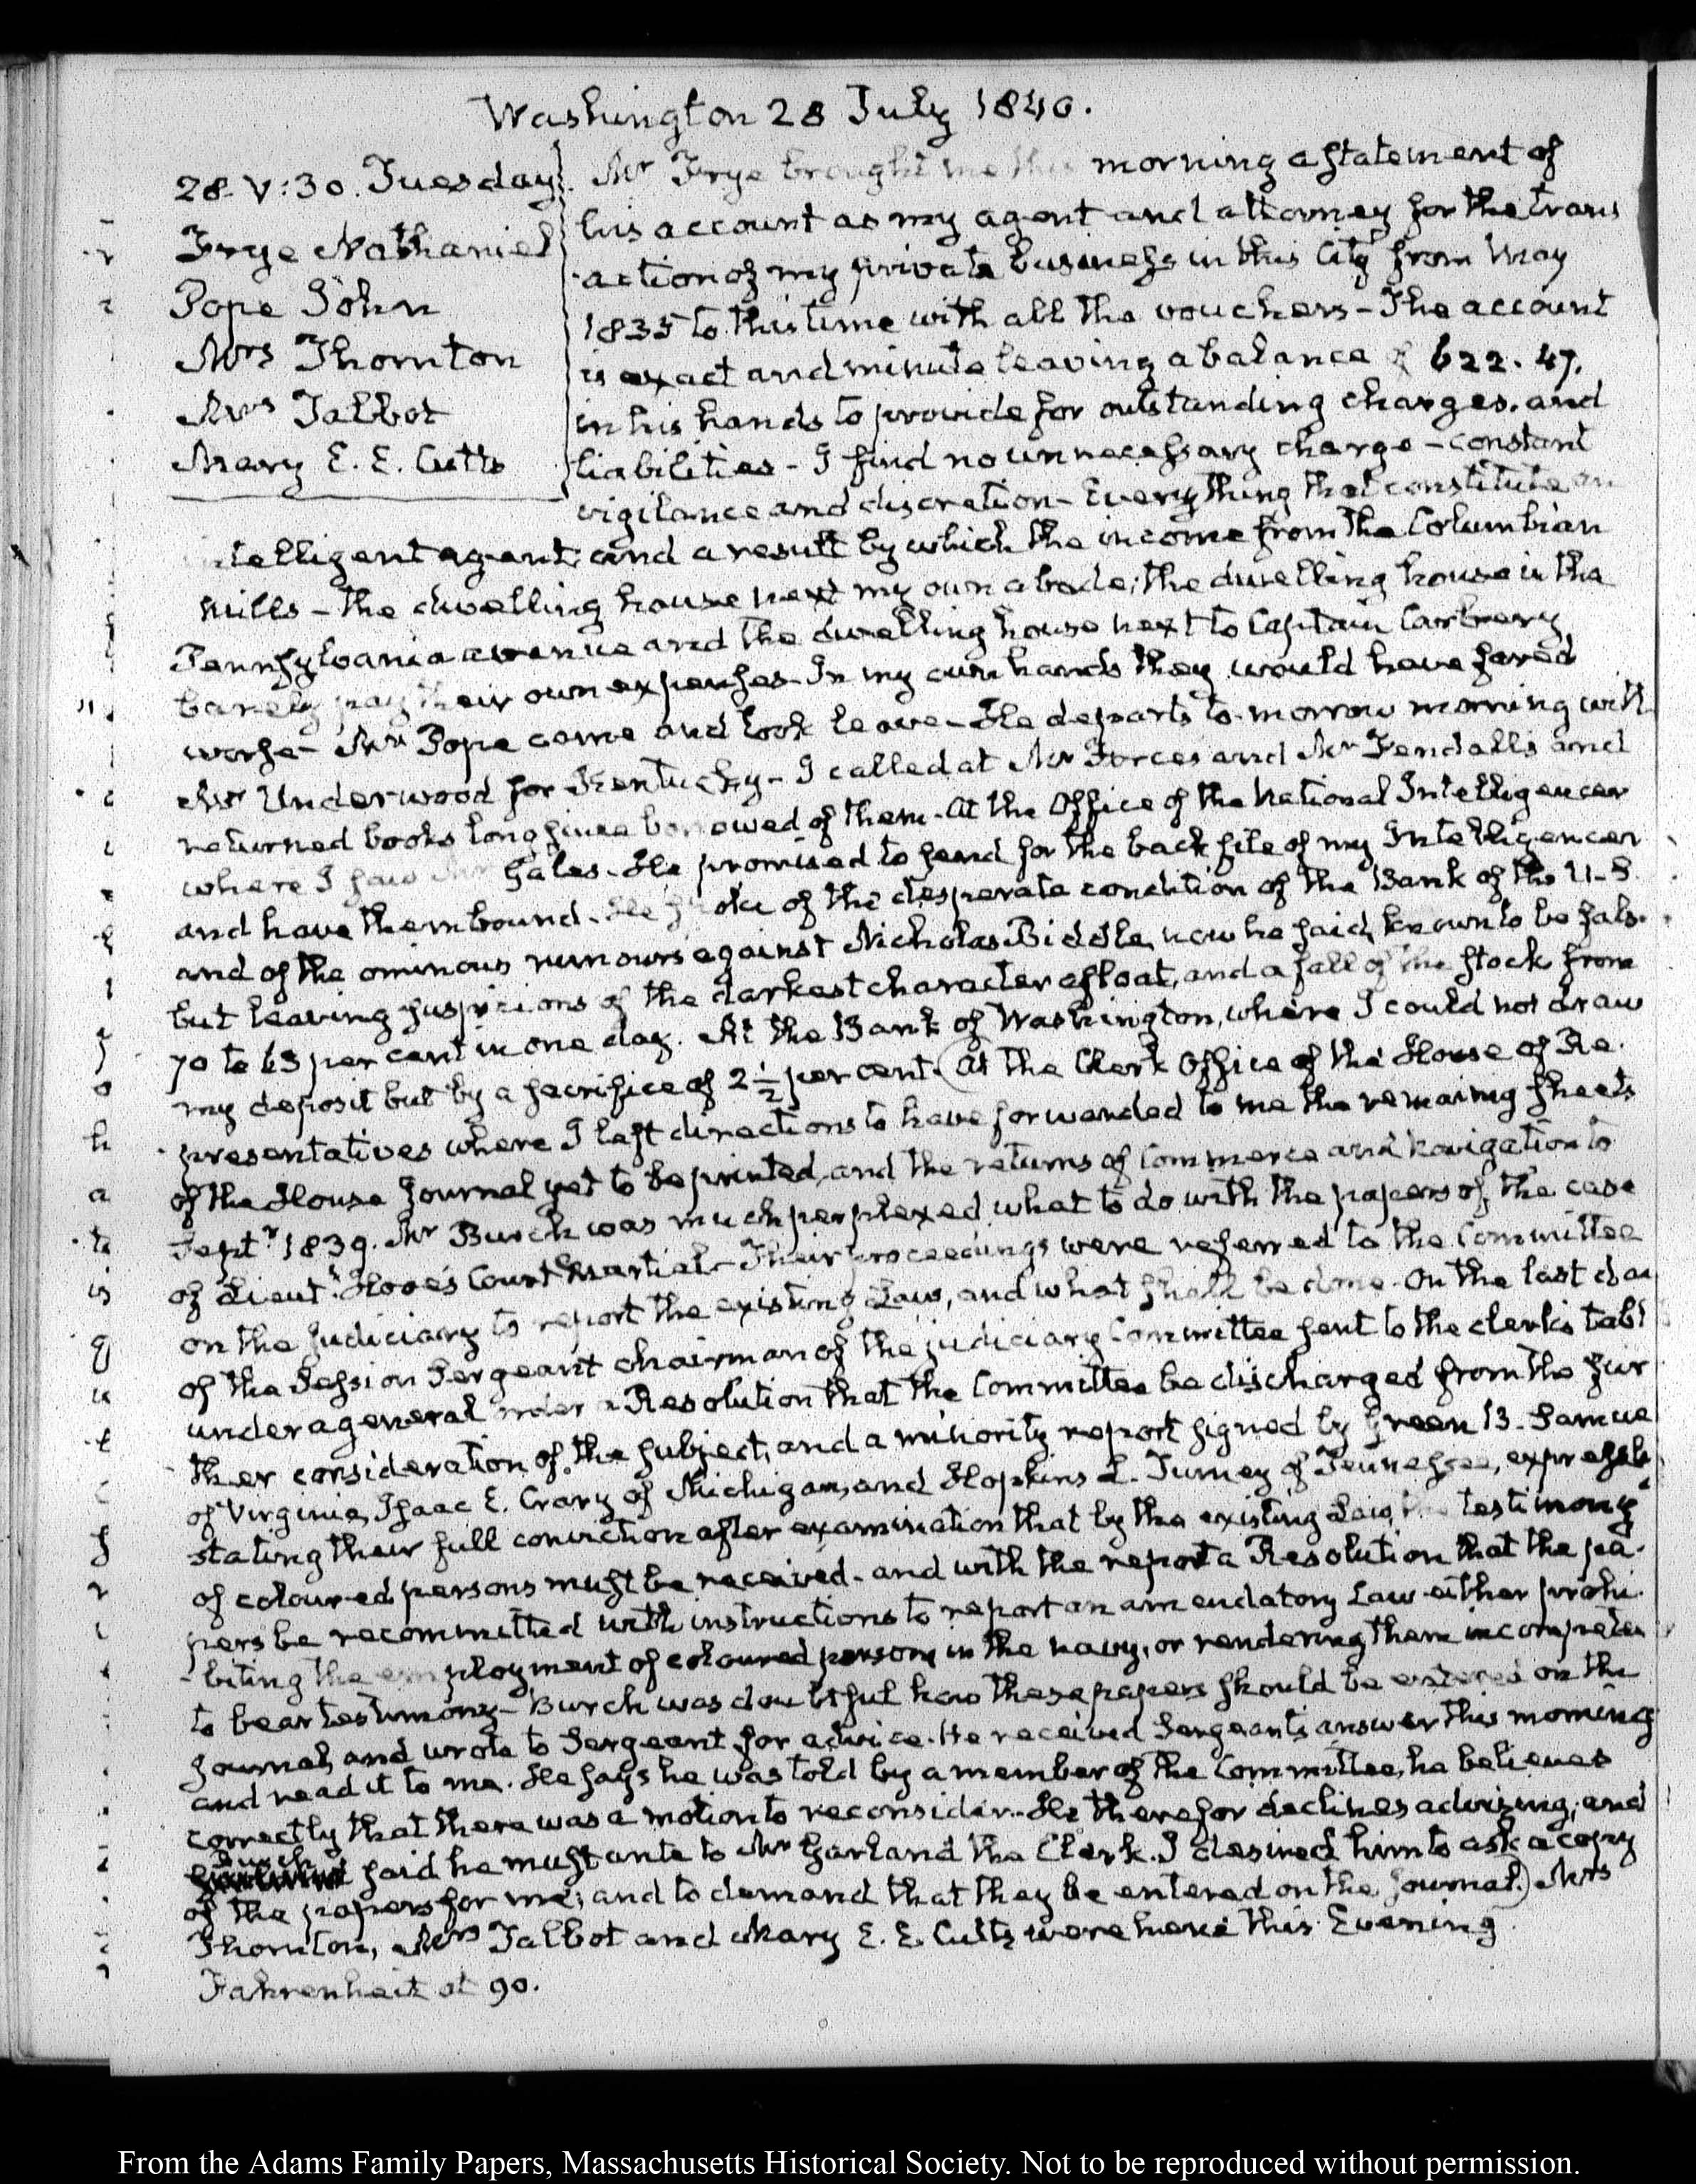 Washington 28 July 1840.
28. V:30. Tuesday.
Frye Nathaniel
Pope John
Mrs Thornton
Mrs Talbot
Mary E. E. Cutts
Mr Frye brought me this morning a statement of
his account as my agent and attorney for the trans
action of my private business in this City from May
1835 to this time with all the vouchers - The account
is exact and minute leaving a balance of 622. 47.
in his hands to provide for outstanding charges, and
liabilities - I find no unnecessary charge - constant
vigilance and discretion - Every thing that constitutes an
intelligent agent; and a result by which the income from the Columbian
Mills - the dwelling house next my own abode; the dwelling house in the
Pennsylvania avenue and the dwelling house next to Captain Carbery
barely pay their own expenses - In my own hands they would have fared
worse - Mr Pope came and took leave - He departs to-morrow morning with
Mr Underwood for Kentucky - I called at Mr Forces and Mr Fendall's and
returned books long since borrowed of them - At the Office of the National Intelligencer
where I saw Mr Gales. He promised to send for the back file of my Intelligencer
and have them bound. He spoke of the desperate condition of the Bank of the U.S.
and of the ominous rumours against Nicholas Biddle, now he said, known to be false
but leaving suspicions of the darkest character afloat, and a fall of the stock from
70 to 63 per cent in one day. At the Bank of Washington, where I could not draw
my deposit but by a sacrifice of 2 1/2 per cent. (At the Clerk Office of the House of Re.
presentatives where I left directions to have forwarded to me the remaing sheets
of the House Journal yet to be printed, and the returns of Commerce and Navigation to
Septr 1839. Mr Burch was much perplexed what to do with the papers of the case
of Lieutt Hooe's Court Martial - Their proceedings were referred to the Committee
on the Judiciary to report the existing Law, and what shall be done. On the last day
of the Session Sergeant chairman of the judiciary Committee sent to the clerk's table
under a general order a Resolution that the Committee be discharged from the fur
ther consideration of the subject, and a minority report signed by Green B. Samuel
of Virginia, Isaac E. Crary of Michigan, and Hopkins L. Turney of Tennessee, expressly
stating their full conviction after examination that by the existing Law, the testimony
of coloured persons must be received - and with the report a Resolution that the pa-
pers be recommitted with instructions to report an amendatory Law either prohi-
-biting the employment of coloured persons in the navy, or rendering them incompetent
to bear testimony - Burch was doubtful how these papers should be entered on the
Journal, and wrote to Sergeant for advice. He received Sergeant's answer this morning
and read it to me. He says he was told by a member of the Committee, he believes
correctly that there was a motion to reconsider. He therefor declines advising; and
Burch said he must write to Mr Garland the Clerk. I desired him to ask a copy
of the papers for me; and to demand that they be entered on the Journal.) Mrs
Thornton, Mrs Talbot and Mary E. E. Cutts were here this Evening
Fahrenheit at 90.
From the Adams Family Papers, Massachusetts Historical Society. Not to be reproduced without permission.